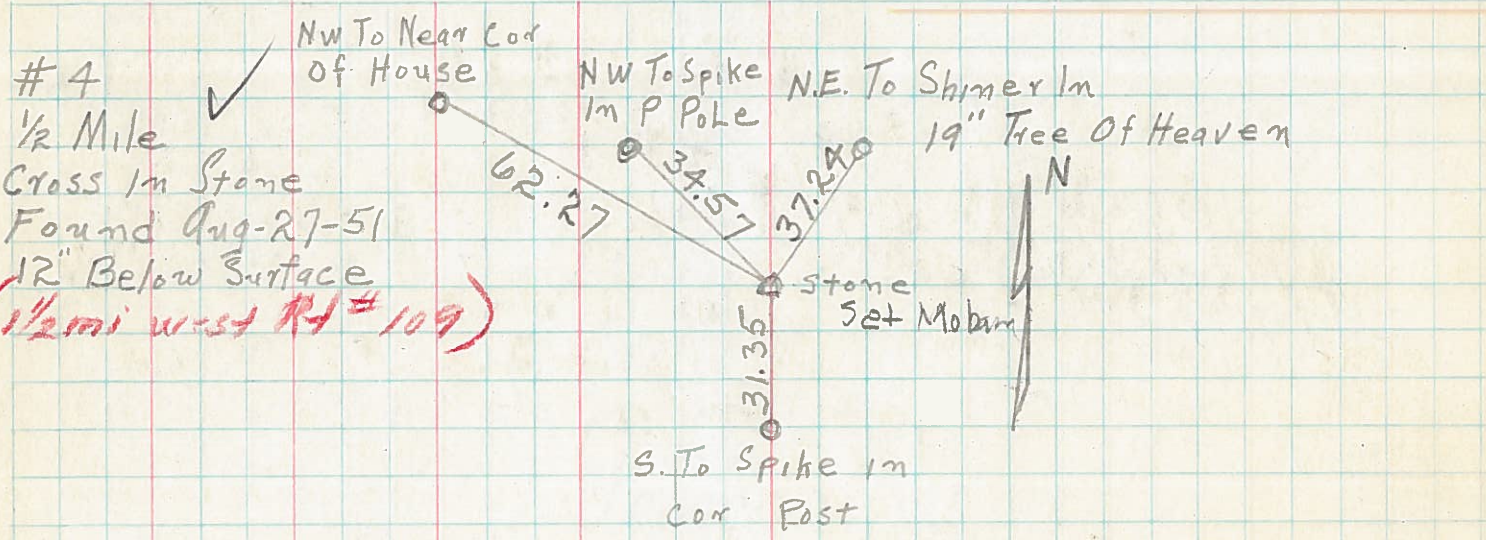 # 4
1/2 Mile
Cross In Stone
Found Aug-27-51
12" Below Surface
(1/2 mi west Rt # 109)
NW To Near Cor
Of House
NW To Spike
In P Pole
N.E. To Shiner In
19" Tree Of Heaven
N
62.27
34.57
37.24
Stone
Set
31.35
S. To Spike in
Cor Post